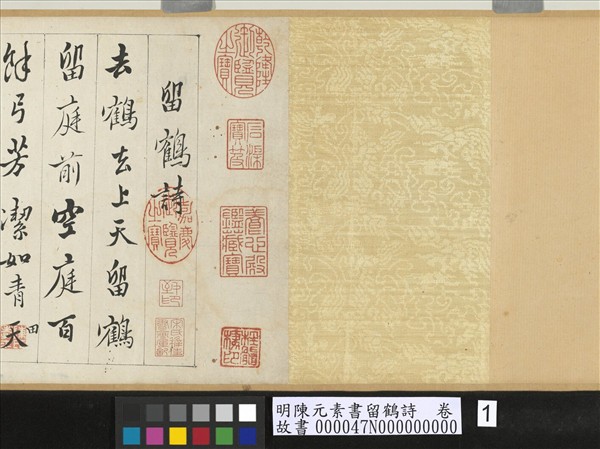 乾隆御覽之寶
石渠寶笈
養心殿鑑藏寶
留鶴詩
嘉慶御覽之寶
去鶴去上天留鶴
留庭前空庭百
餘弓芳潔如青天
明陳元素書留鶴詩 卷
故書 000047N000000000
1